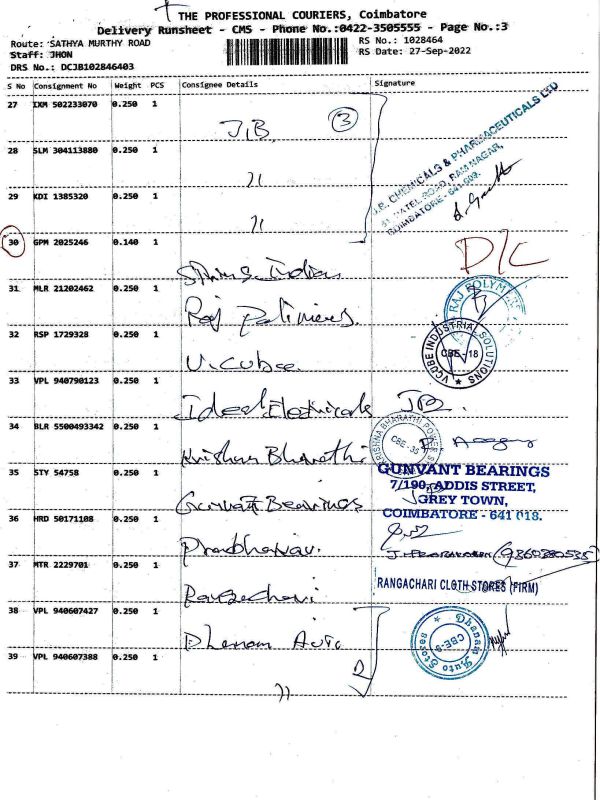 THE PROFESSIONAL COURIERS, Coimbatore
Delivery Runsheet - CMS - Phone No.:0422-3505555 - Page No.:3
Route: SATHYA MURTHY ROAD
RS No.: 1028464
Staff: JHON
RS Date: 27-Sep-2022
DRS No.: DCJB102846403
S No Consignment No Weight PCS Consignee Details Signature
27 IXM 502233070 0.250 1
J.B. 3
28 SLM 304113880 0.250 1
"
29 KDI 1385320 0.250 1
"
J.B. CHEMICALS & PHARMACEUTICALS LTD
PATEL ROAD, RAM NAGAR,
COIMBATORE - 641 009.
30 GPM 2025246 0.140 1
D/C
31 MLR 21202462 0.250 1
Raj Polimers.
RAJ POLYMERS
32 RSP 1729328 0.250 1
V.Cubee
VCUBE INDUSTRIAL SOLUTIONS
CBE - 18
33 VPL 940790123 0.250 1
Ideal Electricals
34 BLR 5500493342 0.250 1
Krishna Bharathi
KRISHNA BHARATHI POWER
CBE - 35
35 STY 54758 0.250 1
Gunvant Bearings
GUNVANT BEARINGS
7/190, ADDIS STREET,
GREY TOWN,
COIMBATORE - 641 018.
36 HRD 50171108 0.250 1
Prabhakar.
9860380535
37 MTR 2229701 0.250 1
Rangachari
RANGACHARI CLOTH STORES (FIRM)
38 VPL 940607427 0.250 1
Dhanam Auto
Dhanam Auto Stores
CBE-9
39 VPL 940607388 0.250 1
2
"